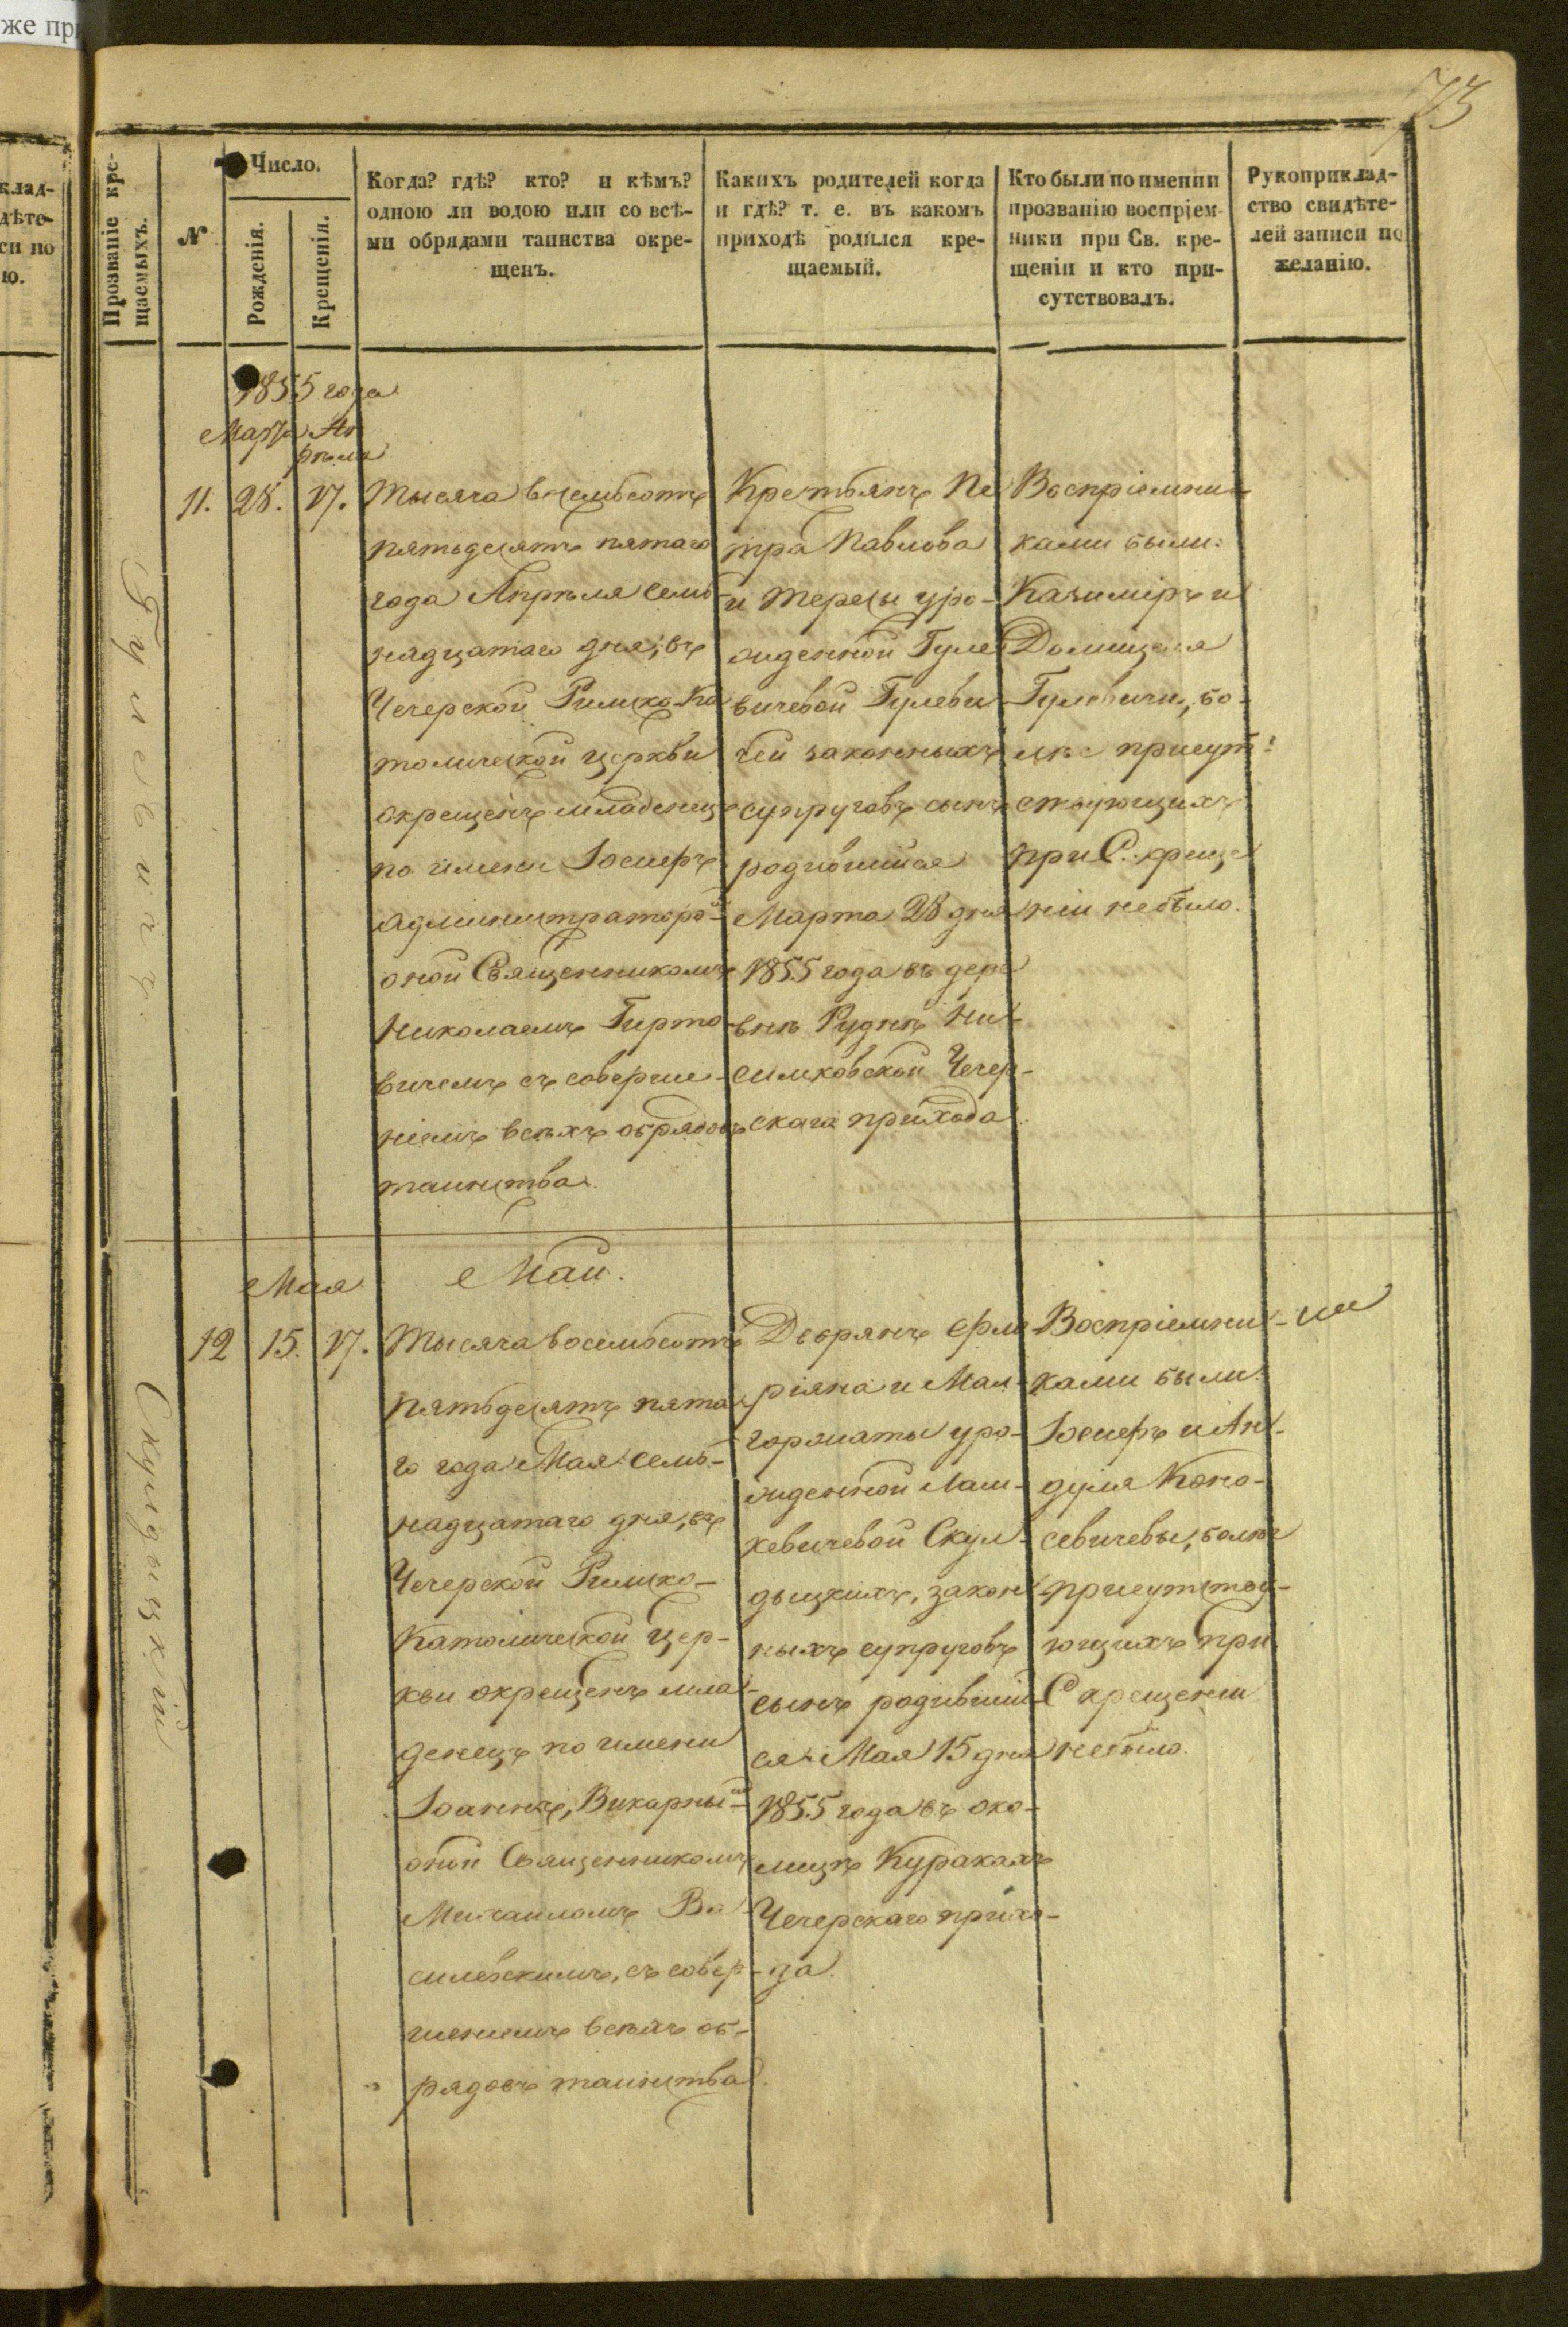 же пр
73
клад-
дѣте-
си по
ю.
Прозваніе кре-
щаемыхъ.
№
Число.
Рожденія.
Крещенія.
Когда? гдѣ? кто? и кѣмъ?
одною ли водою или со всѣ-
ми обрядами таинства окре-
щенъ.
Какихъ родителей когда
и гдѣ? т. е. въ какомъ
приходѣ родился кре-
щаемый.
Кто были по имени и
прозванію воспріем-
ники при Св. кре-
щеніи и кто при-
сутствовалъ.
Рукоприклад-
ство свидѣте-
лей записи по
желанію.
1855 года
Марта Ап
рѣля
Гулевичъ.
11. 28. 17.
Тысяча восемьсотъ
пятьдесятъ пятаго
года Апрѣля семь
надцатаго дня, въ
Чечерской Римско-Ка
толической церкви
окрещенъ младенецъ
по имени Іосифъ
Администраторо
оной Священникомъ
Николаемъ Гирто
вичемъ съ соверше-
ніемъ всѣхъ обрядовъ
таинства.
Крестьянъ Пе
тра Павлова
и Терезы уро-
жденной Гуле
вичевой Гулеви
чей законныхъ
супруговъ сынъ
родившійся
Марта 28 дня
1855 года въ дере
внѣ Руднѣ Ни-
симковской Чечер-
скаго прихода.
Воспріемни-
ками были:
Казиміръ и
Домицеля
Гулевичи, бо-
лѣе присут-
ствующихъ
при С. креще
ніи не было.
Май.
Мая
Скулдыцкій
12 15. 17.
Тысяча восемьсотъ
пятьдесятъ пята
го года Мая семь-
надцатаго дня, въ
Чечерской Римско-
Католической цер-
кви окрещенъ мла-
денецъ по имени
Іоаннъ, Викарны
оной Священникомъ
Михаиломъ Ва
силевскимъ, съ совер-
шеніемъ всѣхъ об-
рядовъ таинства.
Дворянъ Фло
ріяна и Мал-
горжаты уро-
жденной Лаш-
кевичевой Скул-
дыцкихъ, закон-
ныхъ супруговъ
сынъ родившій-
ся Мая 15 дня
1855 года въ око-
лицѣ Куракахъ
Чечерскаго прихо-
да.
Воспріемни-
ками были:
Іосифъ и Ан-
деля Коно-
севичевы, болѣе
присутству-
ющихъ при
С крещеніи
не было.